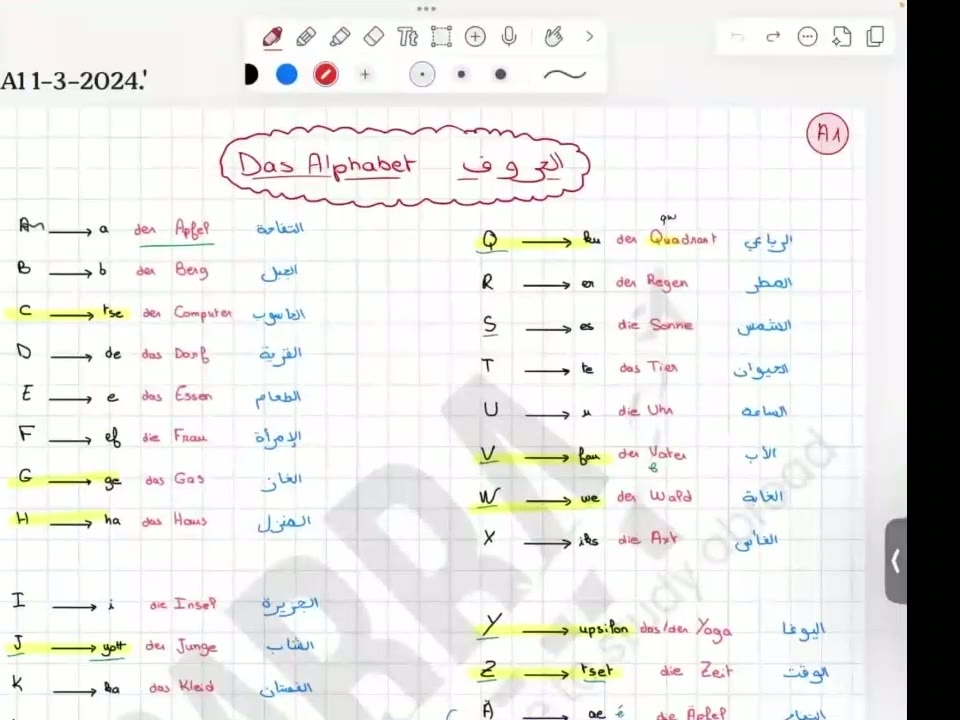 A1 1-3-2024.'
Tt
A1
Das Alphabet الحروف
A → a der Apfel التفاحة
B → b der Berg الجبل
C → tse der Computer الحاسوب
D → de das Dorf القرية
E → e das Essen الطعام
F → ef die Frau الإمرأة
G → ge das Gas الغاز
H → ha das Haus المنزل
I → i die Insel الجزيرة
J → yott der Junge الشاب
K → ka das Kleid الفستان
qw
Q → ku der Quadrant الرباعي
R → er der Regen المطر
S → es die Sonne الشمس
T → te das Tier الحيوان
U → u die Uhr الساعة
V → fau der Vater الأب
W → we der Wald الغابة
X → iks die Axt الفأس
Y → upsilon das/der Yoga اليوغا
Z → tset die Zeit الوقت
Ä → ae é die Äpfel
study abroad